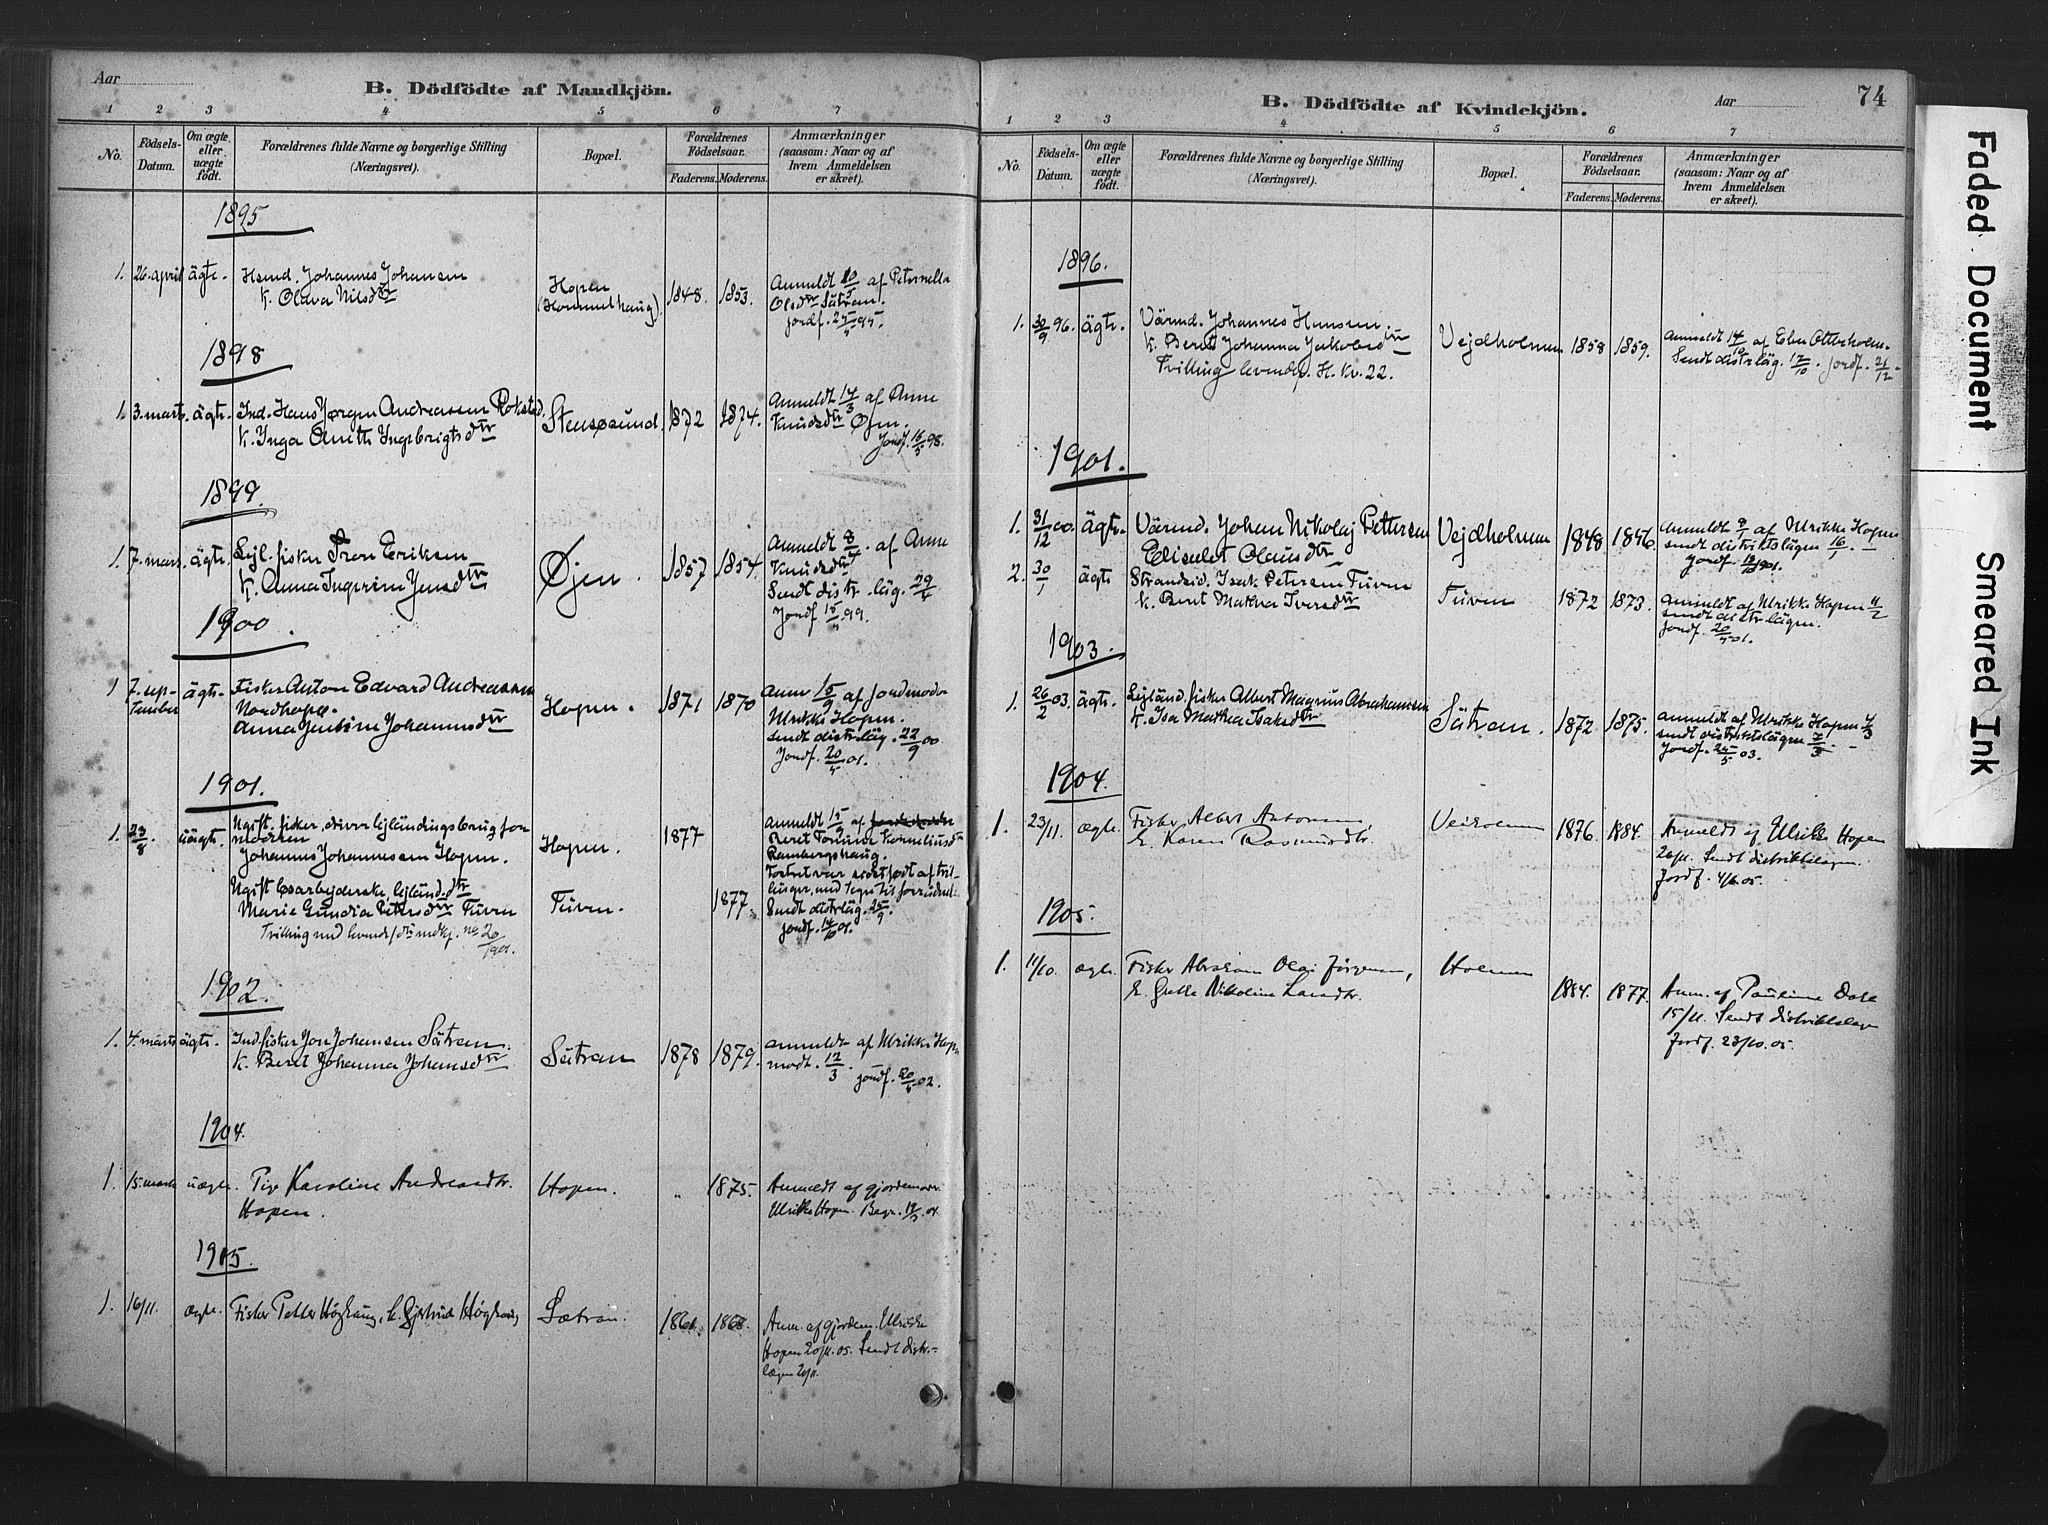 Aar
B. Dödfödte af Mandkjön.
1 2 3 4 5 6 7
No.
Födsels-Datum.
Om ægte eller uægte födt.
Forældrenes fulde Navne og borgerlige Stilling
(Næringsvei).
Bopæl.
Forældrenes Födselsaar.
Faderens. Moderens.
Anmærkninger
(saasom: Naar og af
hvem Anmeldelsen
er skeet).
1895
1. 26. april ägte. Hsmd. Johannes Johansen
K. Olava Nilsdtr
Hopen
(Hommelhaug)
1848. 1853.
Anmeldt 10/5 af Peternella
Olsdtr Sätran.
jordf. 25/5 95.
1898
1. 3. marts. ägte. Ind. Hans Jørgen Andreasen Rokstad.
K. Inga Anette Ingebrigtsdtr
Stensøsund. 1872 1874.
Anmeldt 14/3 af Anne
Knudsdtr Øjen.
Jordf. 15/5 98.
1899.
1. 7. mars. ägte. Lejl. fisker Tron Eriksen
K. Anna Ingerine Jensdtr
Øjen. 1857 1854.
Anmeldt 8/4. af Anne
Knudsdtr
Sendt distr. läg. 29/4
Jordf. 15/5 99.
1900.
1 7. sep-
tember
ägte. Fisker Anton Edvard Andreassen
Nordhopen.
Anna Jentine Johannesdtr
Hopen. 1871 1870
Anm 15/9 af Jordmoder
Ulrikke Hopen.
sendt distrläg. 22/9 00
Jordf. 20/5 01.
1901.
1. 23/8. uägte. Ugift. fisker, driver lejländingsbrug for
moderen
Johannes Johannessen Hopen.
Hopen. 1877
Ugift løsarbejderske, lejländ. dtr
Marie Gundia Petersdtr Tüven
Tüven. 1877.
Tvilling med levende/dtr mdkj. no 20/1901.
anmeldt 15/9 af
Beret Corneliusdtr
Rambergshaug.
Fostret var sidst født af tvil-
linger, med
Sendt distrläg. 25/9.
Jordf. 14/10 01.
1902.
1. 4. marts ägte. Ind. fisker Jon Johansen Sätran.
K. Beret Johanna Johansdtr
Sätran 1878 1879.
anmeldt af Ulrikke Hopen
modt. 12/3.
jordf. 20/5 02.
1904.
1. 15. marts uægte. Pige Karoline Andreasdtr.
Hopen.
Hopen. " 1875.
Anmeldt af gjordemoder
Ulrikke Hopen. Begr. 04
1905.
1. 16/11. ægte. Fisker Petter Höghaug, k. Gjertrud Höghaug
Sætran. 1861. 1868.
Anm. af gjordem. Ulrikke
Hopen 20/11. 05. Sendt distr.-
lægen 20/11.
B. Dödfödte af Kvindekjön.
Aar
74
1 2 3 4 5 6 7
No.
Födsels-Datum.
Om ægte eller uægte födt.
Forældrenes fulde Navne og borgerlige Stilling
(Næringsvei).
Bopæl.
Forældrenes Födselsaar.
Faderens. Moderens.
Anmærkninger
(saasom: Naar og af
hvem Anmeldelsen
er skeet).
1896.
1. 30/9 96. ägte. Värmd. Johannes Hansen
K. Beret Johanna Jakobsdtr
Tvilling levende. H. Kv. 22.
Vejdholmen 1858 1859.
Anmeldt 14/10 af Elen Otterholm.
Sendt distrläg. 17/10. Jordf. 21/12
1901.
1. 31/12 00. ägte. Värmd. Johan Nikolaj Pettersen
Eliselet Olausdtr
Vejdholmen 1848 1846
Anmeldt 9/1 af Ulrikke Hopen
sendt distriktslägen 16/1.
Jordf. 1901.
2. 30/1 ägte Strandsid. Isak Petersen Tüven
K. Beret Mathea Iversdtr
Tüven 1872 1873.
anmeldt af Ulrikke Hopen 11/2
sendt distrlägen.
Jordf. 20/5 01.
1903.
1. 26/2 03. ägte. Lejländ. fisker Albert Magnus Abrahamsen
K. Isa Mathea Isaksdtr
Sätran. 1872. 1875.
anmeldt af Ulrikke Hopen 7/3
sendt distriktslägen 7/3. —
Jordf. 25/5 03.
1904.
1. 23/11. ægte. Fisker Albert Antonsen
k. Karen Rasmusdtr.
Veiholmen 1876. 1884.
Anmeldt af Ulrikke Hopen
26/11. Sendt distriktslægen.
Jordf. 4/6 05.
1905.
1. 11/10. ægte. Fisker Abraham Olai Jörgensen,
k. Grethe Nikoline Larsdtr.
Holmen
1884. 1877.
Anm. af Pauline Dahl
15/11. Sendt distriktslægen
Jordf. 23/10. 05.
Faded Document
Smeared Ink